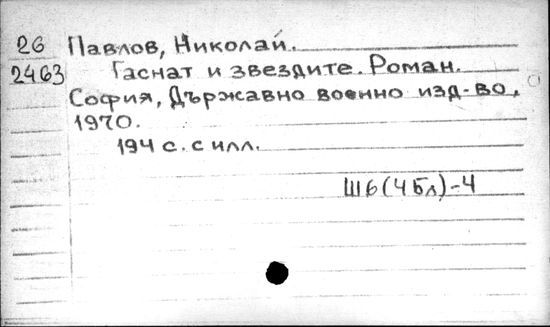 26 Павлов, Николай.
2463 Гаснат и звездите. Роман.
София, Държавно военно изд-во,
1970.
194 с. с илл.
Ш6(4Бл)-4